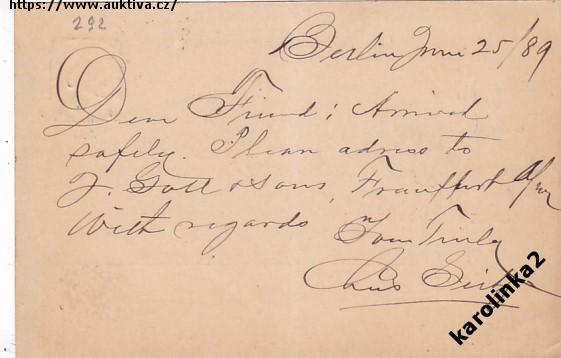 https://www.auktiva.cz/
292
Berlin June 25/89
Dear Friend; Arrived
safely. Please adress to
J. Goll & Sons, Frankfurt a/m
With regards Yours Truly
Chris
karolinka2